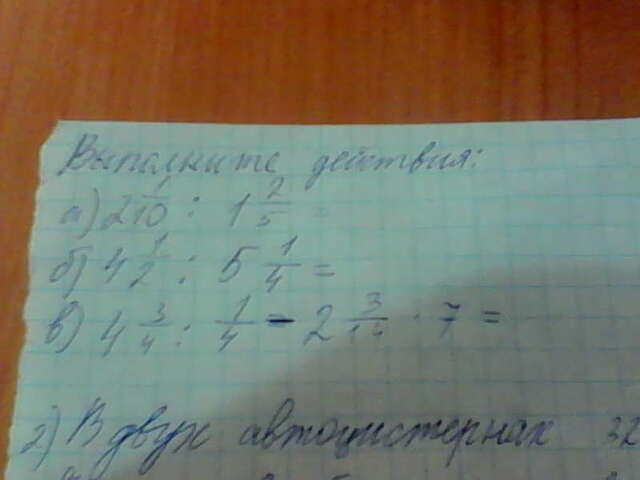 Выполните действия:
а) 2 1/10 : 1 2/5 =
б) 4 1/2 : 5 1/4 =
в) 4 3/4 : 1/4 - 2 3/14 · 7 =
2) В двух автоцистернах 32